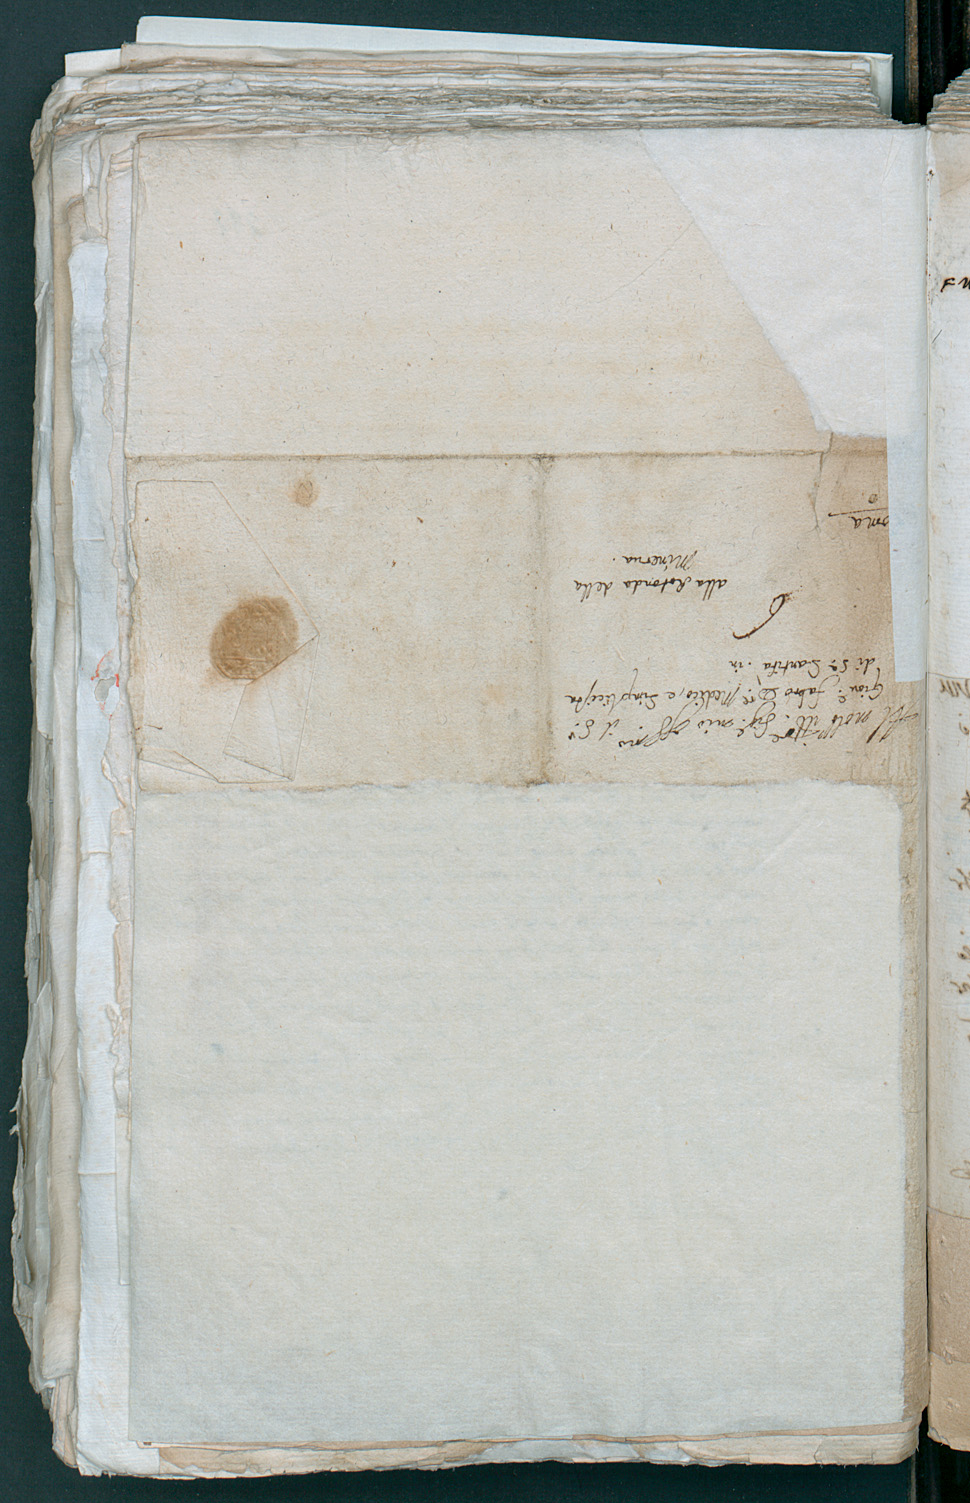 Al molto Ill.re Sig.r mio Oss.mo il S.r
Giou: fabro D.re Medico, e Simplicista
di S.ta Santita. in
oma
alla Rotonda della
Minerua.